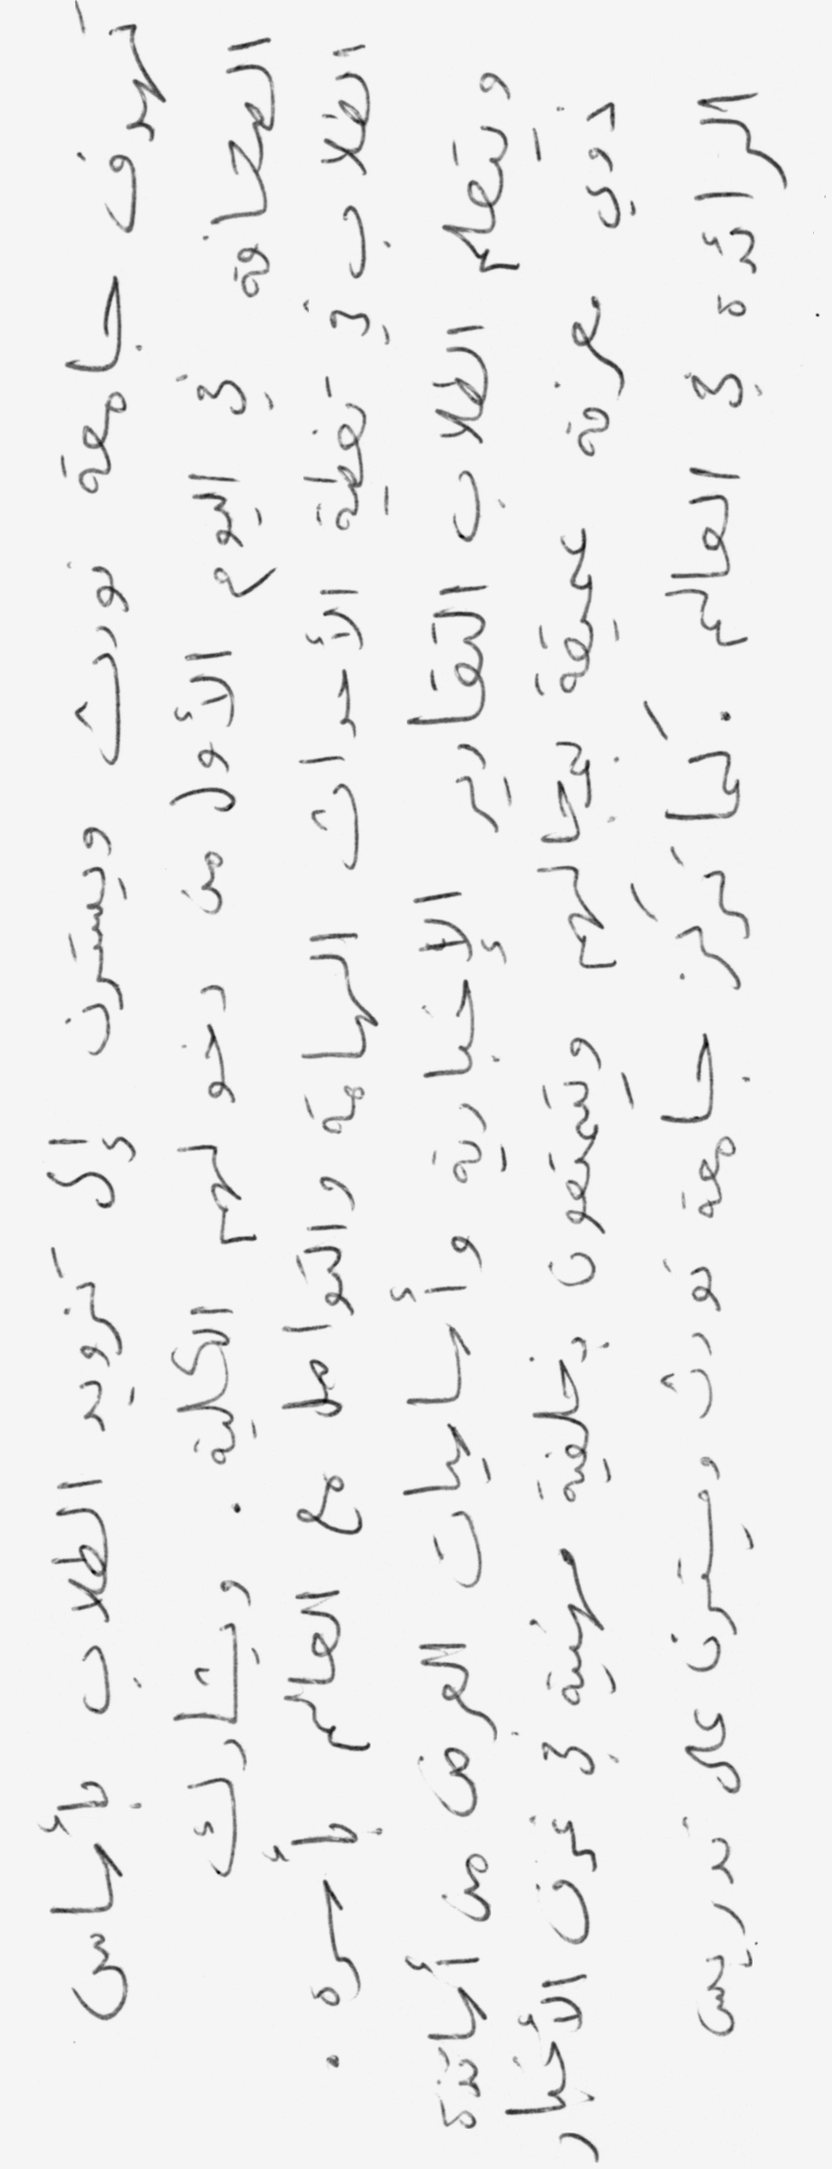 تهدف جامعة نورث ويسترن إلى تزويد الطلاب بأساس
الصحافة في اليوم الأول من دخولهم الكلية . ويشارك
الطلاب في تغطية الأحداث الهامة والتواصل مع العالم بأسره .
ويتعلم الطلاب التقارير الإخبارية وأساسيات العرض من أساتذة
ذوي معرفة عميقة بمجالهم ويتمتعون بخلفية مهنية في غرف الأخبار
الرائدة في العالم . كما تركز جامعة نورث ويسترن على تدريس